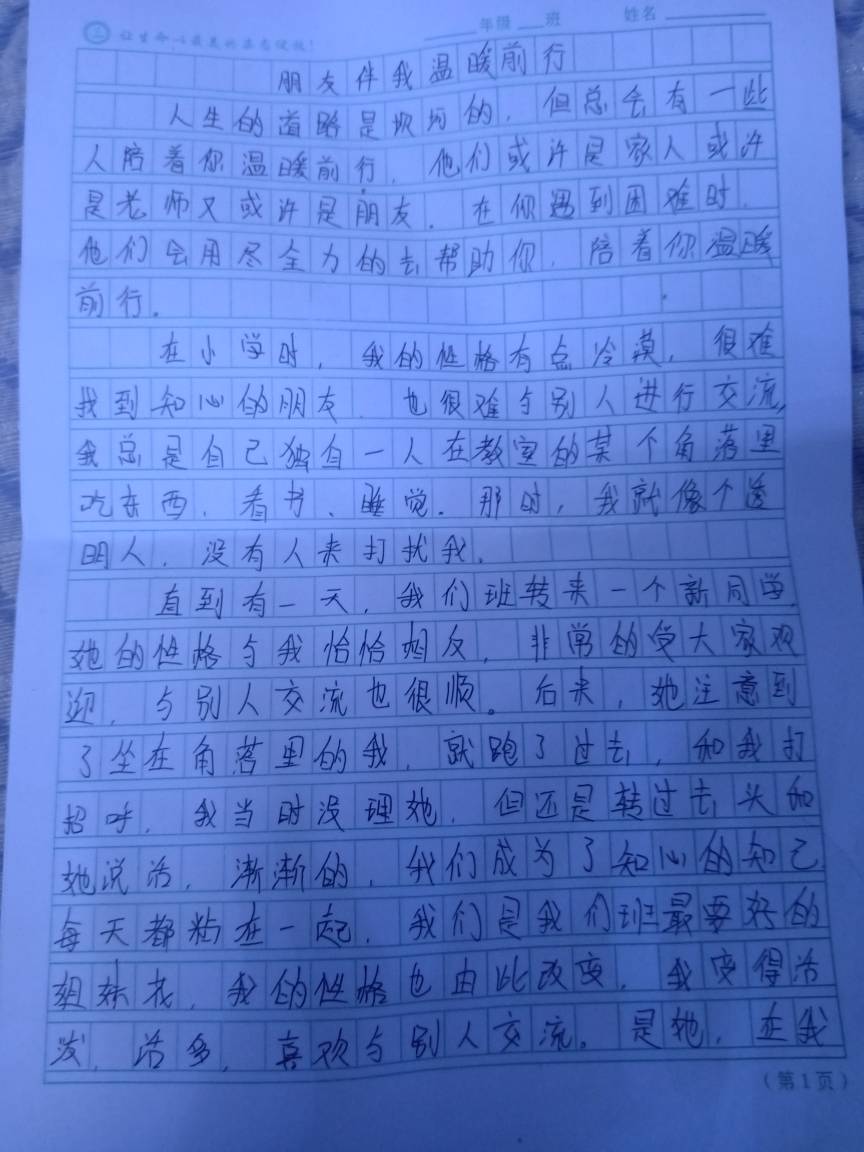 让生命以最美的姿态绽放！
年级 班 姓名
朋友伴我温暖前行
人生的道路是坎坷的，但总会有一些
人陪着你温暖前行，他们或许是家人或许
是老师又或许是朋友，在你遇到困难时，
他们会用尽全力的去帮助你，陪着你温暖
前行。
在小学时，我的性格有点冷漠，很难
找到知心的朋友，也很难与别人进行交流，
我总是自己独自一人在教室的某个角落里
吃东西、看书、睡觉。那时，我就像个透
明人，没有人来打扰我。
直到有一天，我们班转来一个新同学，
她的性格与我恰恰相反，非常的受大家欢
迎，与别人交流也很顺。后来，她注意到
了坐在角落里的我，就跑了过去，和我打
招呼，我当时没理她，但还是转过去头和
她说话，渐渐的，我们成为了知心的知己
每天都粘在一起，我们是我们班最要好的
姐妹花，我的性格也由此改变，我变得活
泼，话多，喜欢与别人交流。是她，在我
（第1页）